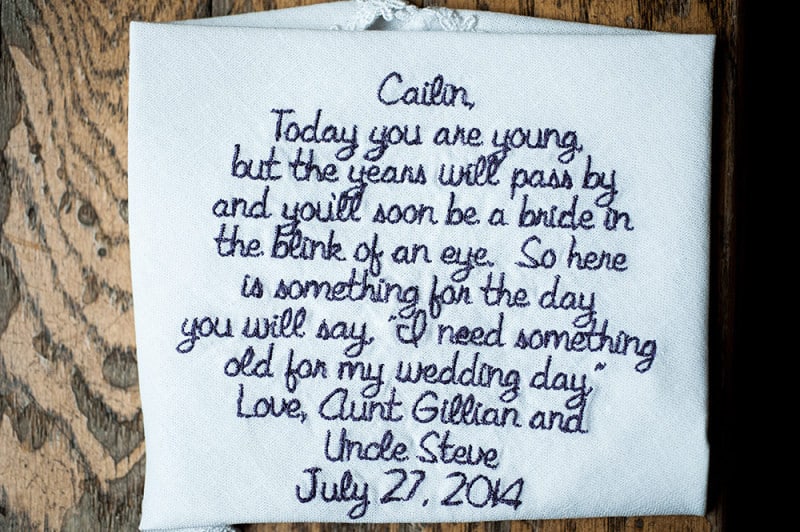 Cailin,
Today you are young,
but the years will pass by
and you'll soon be a bride in
the blink of an eye. So here
is something for the day
you will say, "I need something
old for my wedding day."
Love, Aunt Gillian and
Uncle Steve
July 27, 2014